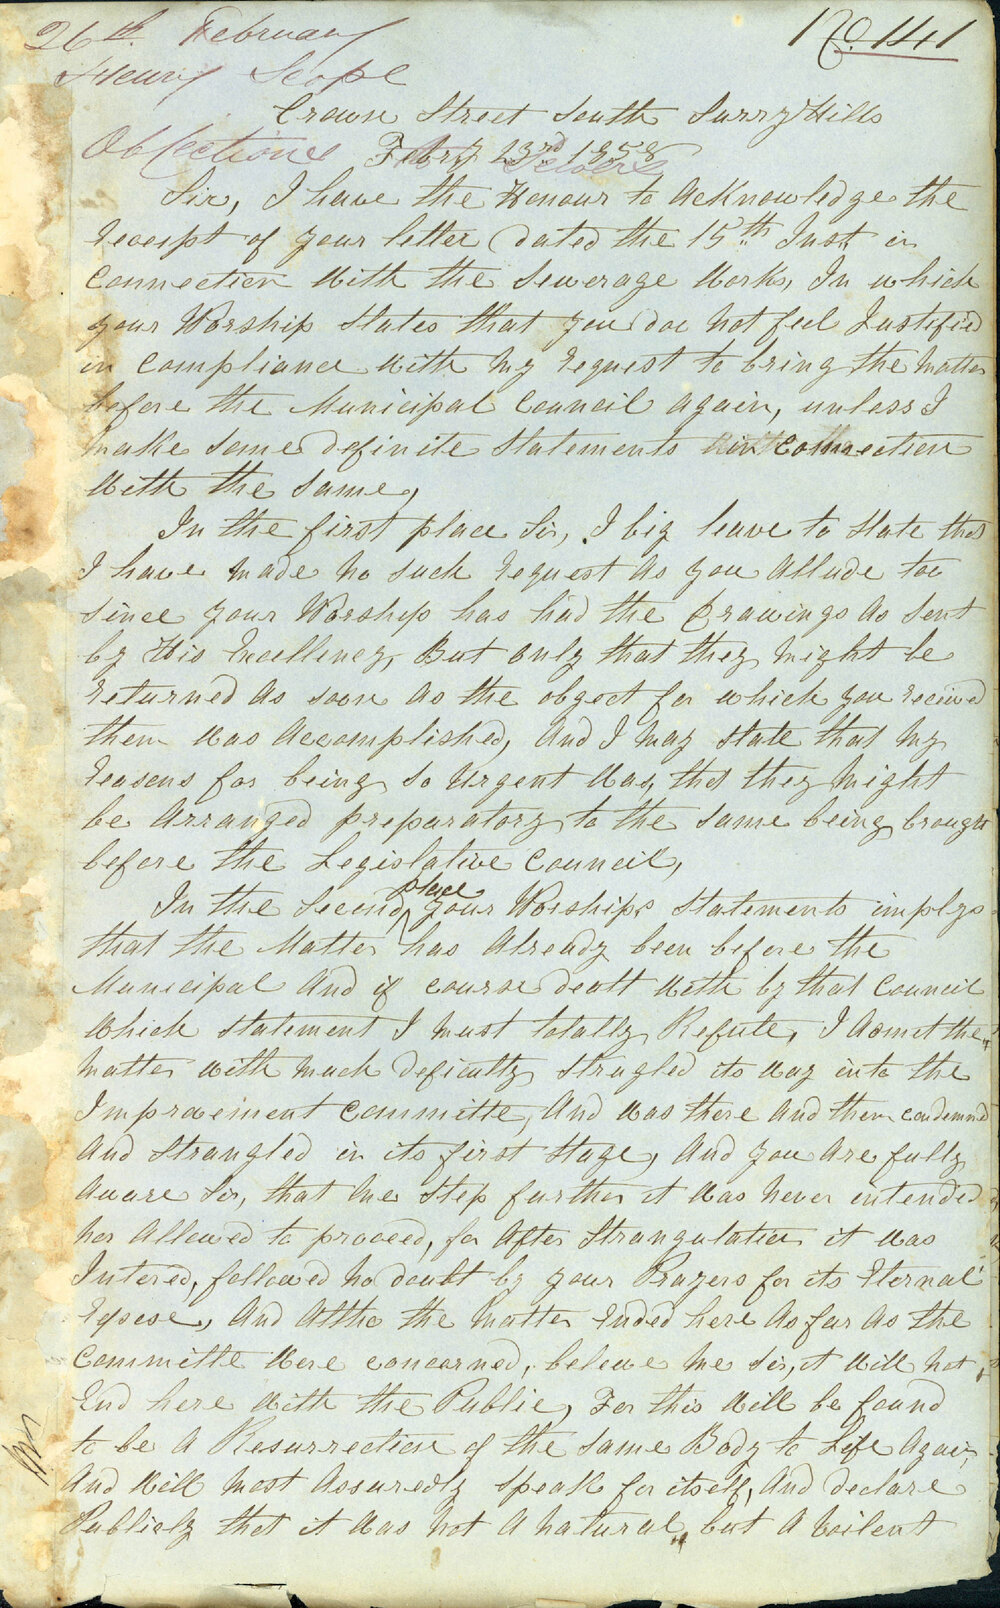 26th February
No. 141
Henry Scope
Crown Street South Surry Hills
Objections
Febry 23rd 1858
Sir, I have the Honour to Acknowledge the
receipt of your letter dated the 15th Inst. in
connection with the Sewerage Works, In which
your Worship States that you doe not feel Justified
in compliance with my request to bring the Matter
before the Municipal Council again, unless I
make some definite Statements connection
with the same,
In the first place Sir, I big leave to State that
I have made no such request As you Allude too
since your Worship has had the Drawings As sent
by His Excellency, But only that they might be
returned As soon As the object for which you received
them was Accomplished, And I may state that my
reasons for being so urgent was, that they Might
be Arranged preparatory to the same being brought
before the Legislative Council,
In the Second place your Worships Statements implys
that the Matter has Already been before the
Municipal And if course dealt with by that Council
which statement I must totally Refute, I Admit the
matter with much deficulty strugled its way into the
Improvement Committe, And was there and then condemned
And strangled in its first Stage, And you Are fully
Aware Sir, that one Step further it was never intended
nor Allowed to proceed, for After Strangulation it was
Intered, followed no doubt by your Prayers for its Eternal
repose, And Altho the Matter Ended here As far As the
Committe were concerned, beleive me Sir, it will not
End here with the Public, For this will be found
to be A Resurrection of the same Body to Life Again,
And will most Assuredly Speak for itself, And declare
Publicly that it was not A natural, but A Voilent